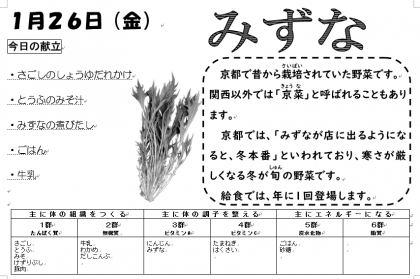 1月26日（金）
みずな
今日の献立
・さごしのしょうゆだれかけ
・とうふのみそ汁
・みずなの煮びたし
・ごはん
・牛乳
京都で昔から栽培されていた野菜です。
さいばい
関西以外では「京菜」と呼ばれることもあり
きょうな
ます。
京都では、「みずなが店に出るようにな
ると、冬本番」といわれており、寒さが厳
しくなる冬が旬の野菜です。
しゅん
給食では、年に1回登場します。
主に体の組織をつくる 主に体の調子を整える 主にエネルギーになる
1群 2群 3群 4群 5群 6群
たんぱく質 無機質 ビタミンA ビタミンC 炭水化物 脂質
さごし、 牛乳、 にんじん、 たまねぎ、 ごはん、
とうふ、 わかめ、 みずな、 はくさい、 砂糖、
みそ、 だしこんぶ、
けずりぶし、
豚肉、